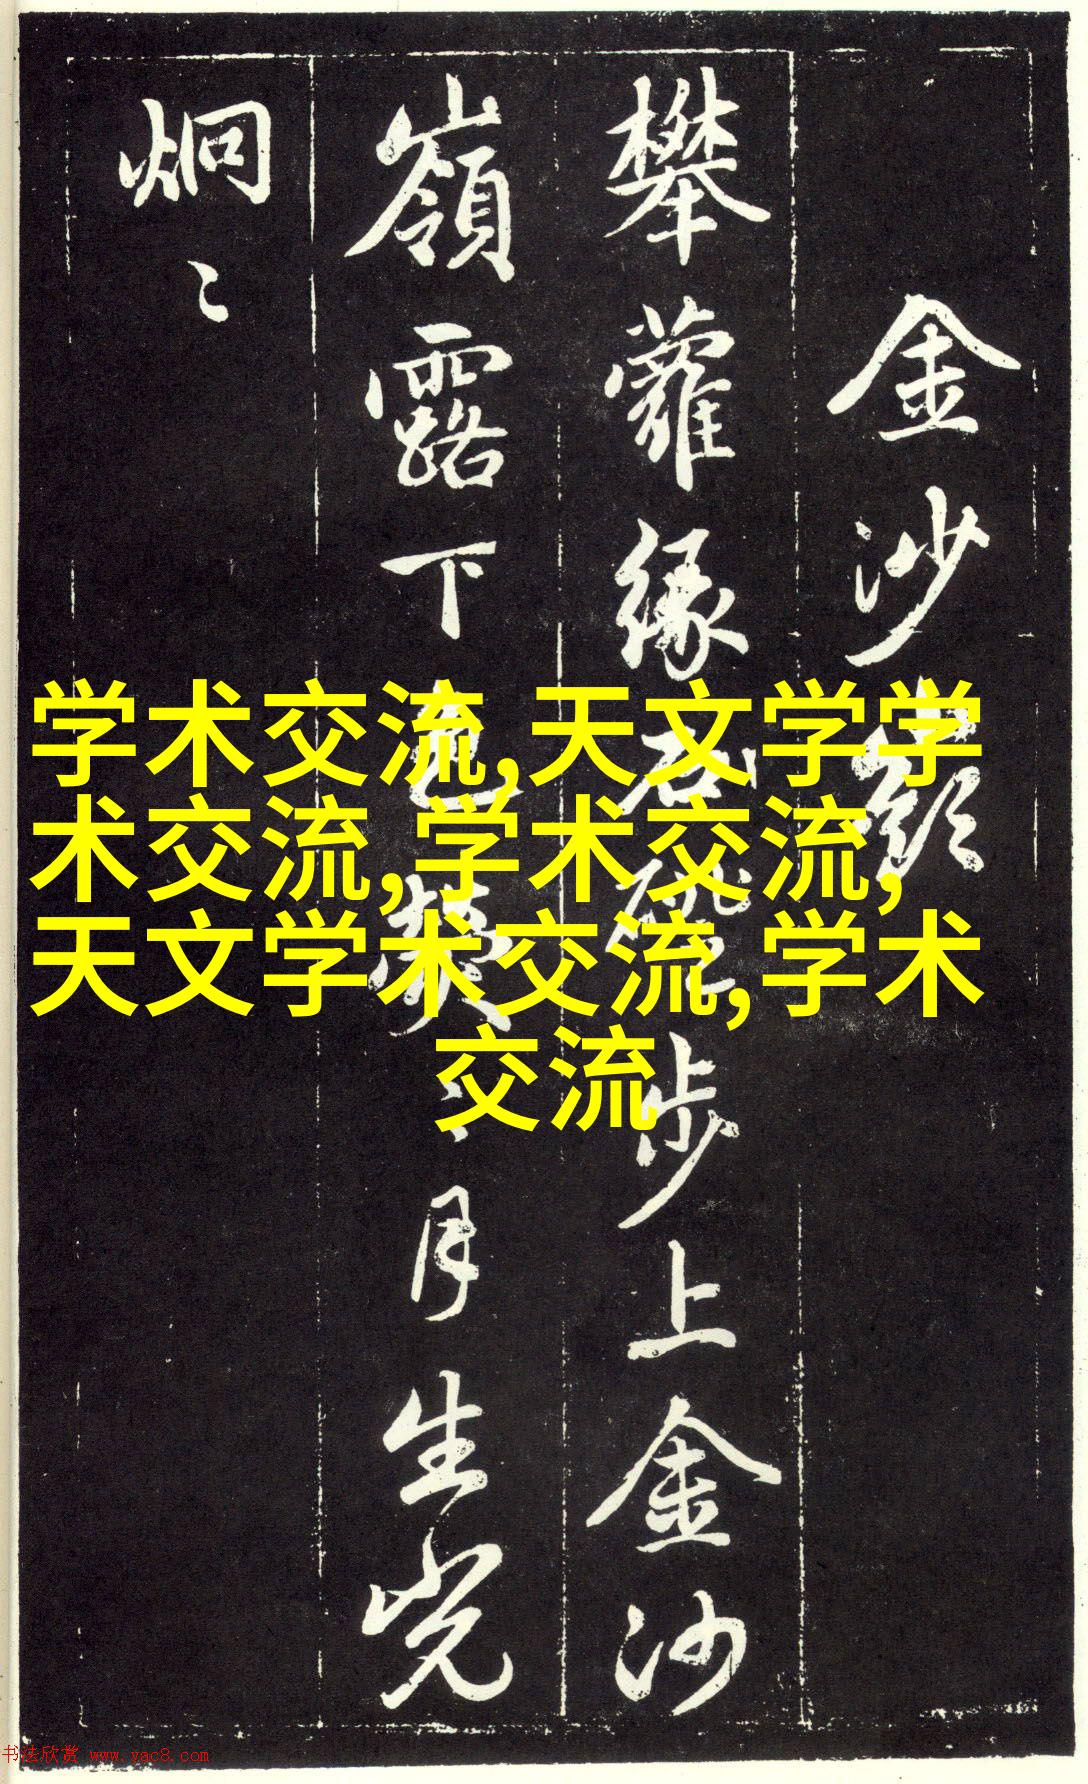 金沙嶺
攀蘿緣石磴步上金沙
嶺露下色熒〻月生光
炯〻
学术交流,天文学学
术交流,学术交流,
天文学术交流,学术
交流
书法欣赏 www.yac8.com